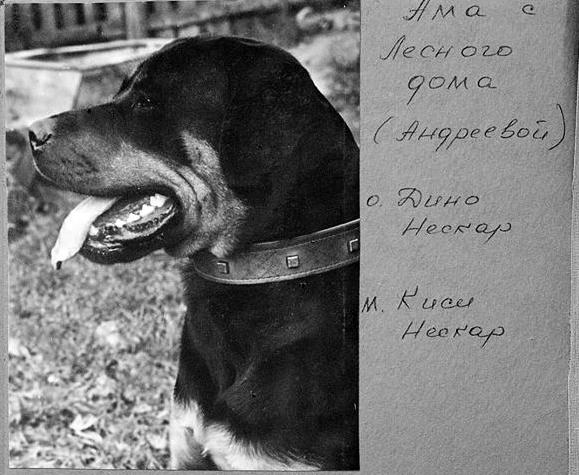 Ама с
Лесного
дома
(Андреевой)
о. Дино
Нескар
м. Киси
Нескар